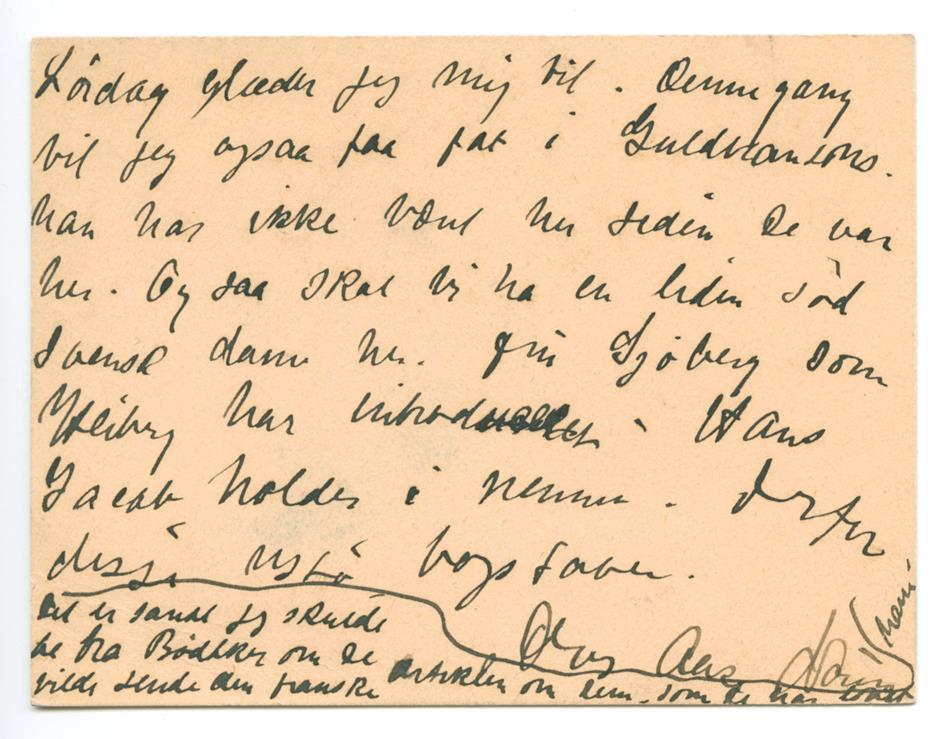 Lördag glæder jeg mig til. Denne gang
vil jeg ogsaa faa fat i Guldbransons.
han har ikke vært her siden De var
her. Og saa skal vi ha en liden söd
Svensk dame her. frü Sjöberg som
Heiberg har introducert - Hans
Jacob holder i pennen. derfor
disse bogstaver.
Det er sandt jeg skulde
be fra Bødtker om De
vilde sende den franske artiklen om dem. som De har
Dag